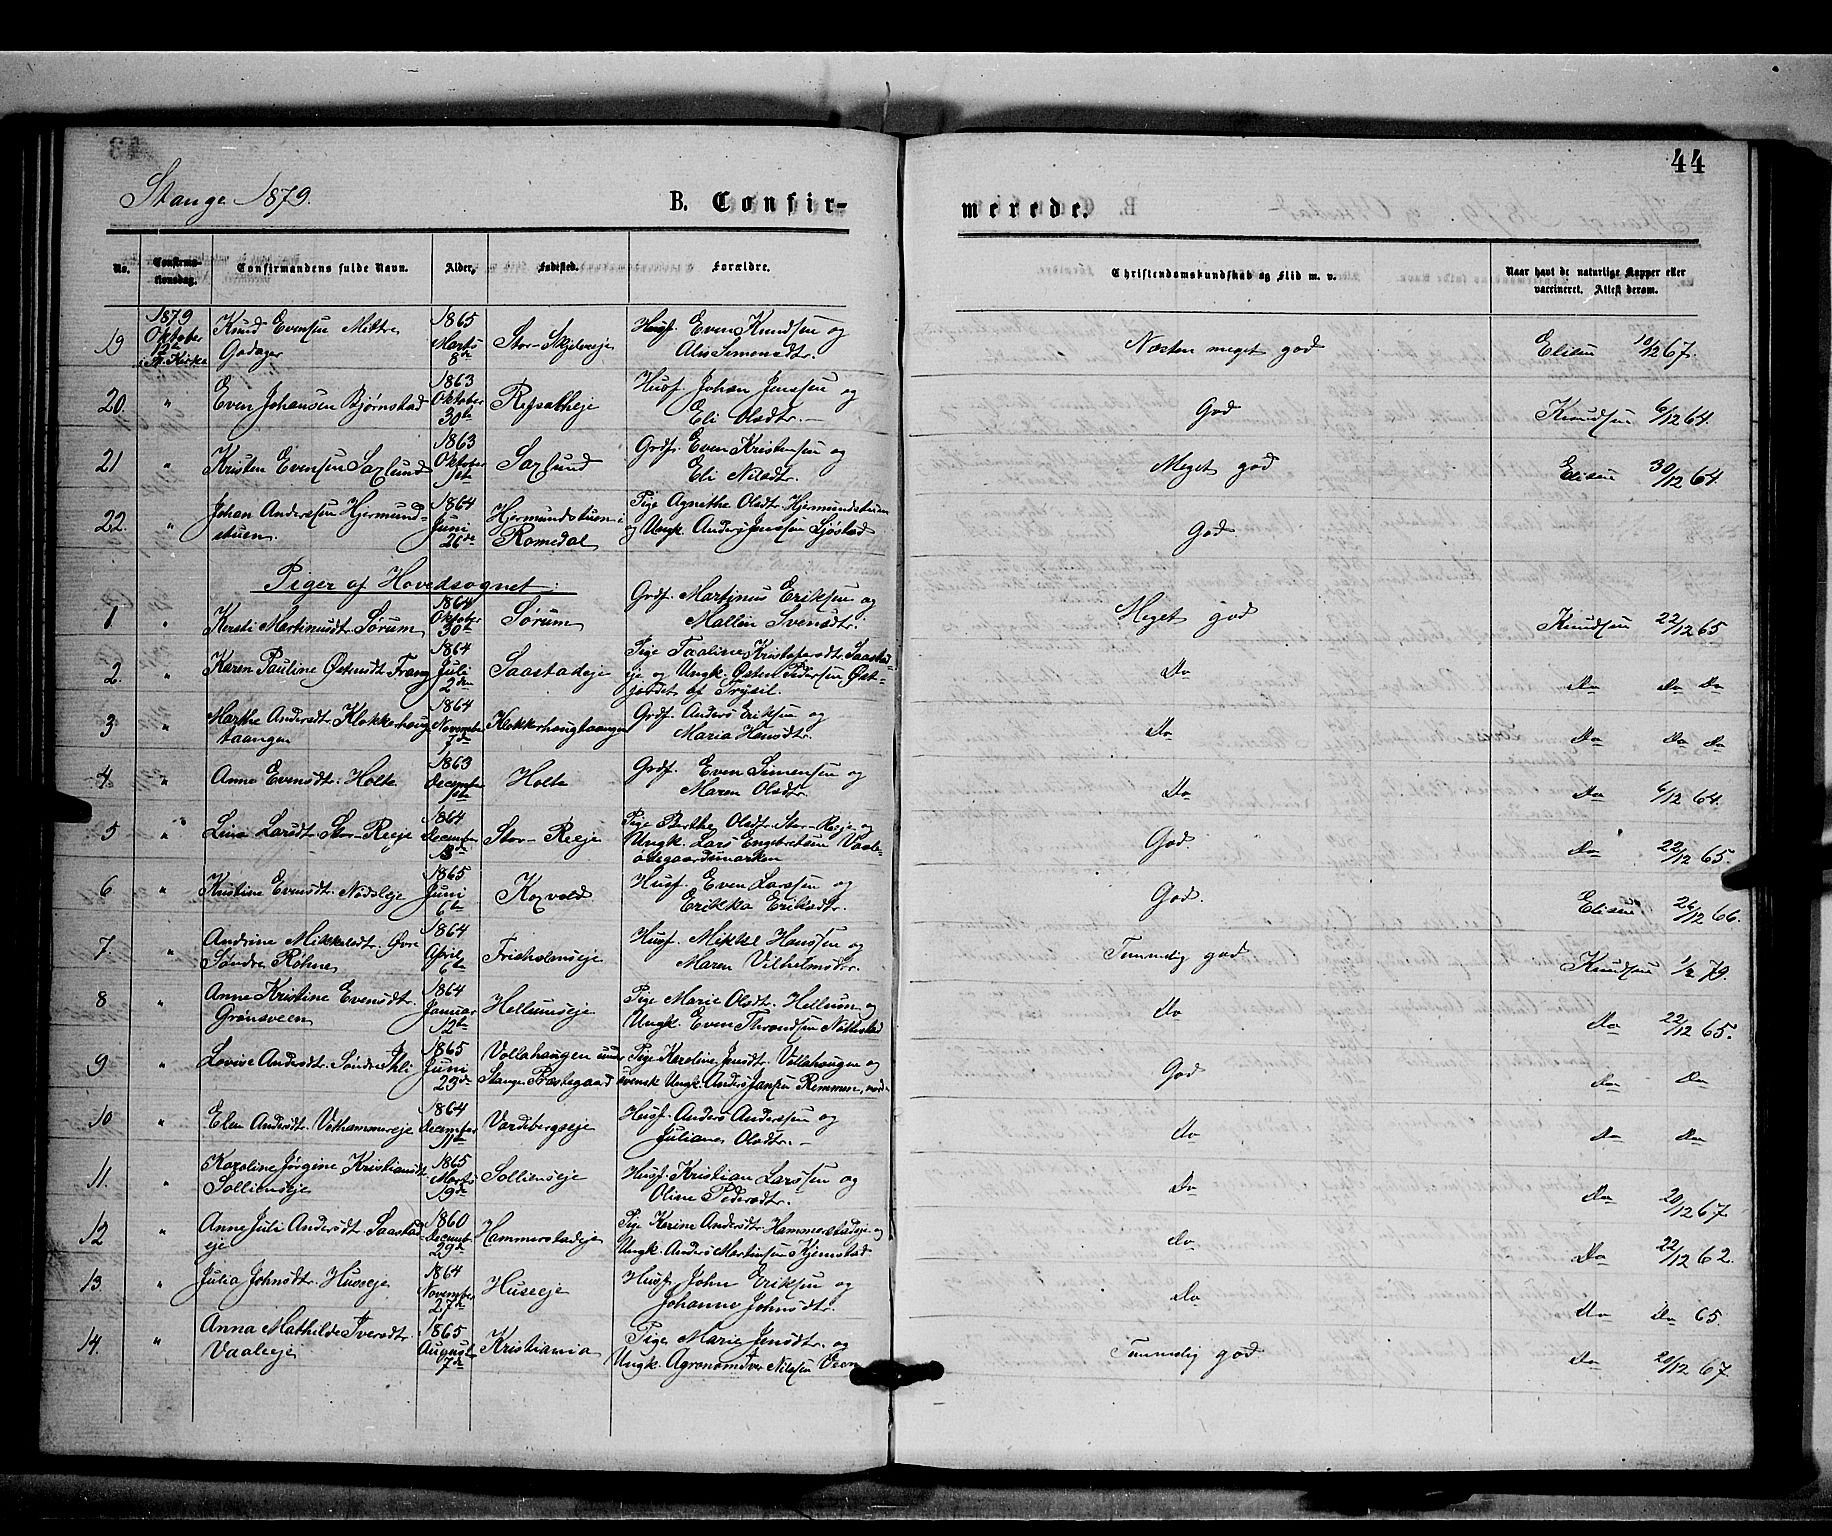 44
Stange 1879.
B. Confir-
merede.
No.
Confirma-
tionsdag.
Confirmandens fulde Navn.
Alder.
Fødested.
Forældre.
Christendomskundskab og Flid m. v.
Naar havt de naturlige Kopper eller
vaccineret. Attest derom.
1879
Oktober
12te
i St. Kirke
19 Knud Evensen Mittre
Godager
1865
Marts
8de
Stor-Skjelveeje
Husf. Even Knudsen og
Alis Simensdtr.
Næsten meget god
Elisen 10/12 67.
20. " Even Johansen Bjørnstad
1863
Oktober
30te
Refsaltheje
Husf. Johan Jenssen og
Eli Olsdtr.
God
Knudsen 6/12 64.
21 " Kristen Evensen Saxlund
1863
Oktober
1ste
Saxlund
Grdf. Even Kristensen og
Eli Nilsdtr.
Meget god
Elisen 30/12 64.
22. " Johan Anderssen Hjermund-
stuen.
1864
Juni
26de
Hjermundstuen i
Romedal
Pige Agnethe Olsdtr. Hjermundstuen
og Ungk. Anders Jenssen Sjøstad
God
Piger af Hovedsognet:
1 " Kersti Martinusdtr. Sørum
1864
Oktober
30te
Sørum
Grdf. Martinus Eriksen og
Mallin Svensdtr.
Meget god
Knudsen 22/12 65
2. " Karen Pauline Østensdt. Frang
1864
Juli
2den
Saastadeje
Pige Taaline Kristofersdtr. Saastad-
eje og Ungk. Østen Pedersen Øst-
jordet af Trysil.
Do
Do Do Do
3 " Marthe Andersdt. Klokkerhaug-
taangen
1864
November
7de
Klokkerhaugtaangen
Grdf. Anders Eriksen og
Maria Hansdtr.
Do
Do Do Do
4. " Anne Evensdt. Holte
1863
December
1ste
Holte
Grdf. Even Simensen og
Maren Olsdtr.
Do
Do 6/12 64.
5 " Lina Larsdt. Stor-Reeje
1864
December
13de
Stor-Reeje
Pige Berthe Olsdtr. Stor-Reeje og
Ungk. Lars Engebretsen Vaale-
odegaardsmarken
God
Do 22/12 65.
6 " Kristine Evensdt. Nødsleje
1865
Juni
6te
Koxvold
Husf. Even Larssen og
Erikka Eriksdtr.
God.
Elisen 26/12 66.
7. " Andrine Mikkelsdt. Øvre
Søndre Røhne
1864
April
6te
Frieholmseje
Husf. Mikkel Hanssen og
Maren Vilhelmsdtr.
Temmelig god
Knudsen 1/2 79.
8 " Anne Kristine Evensdtr.
Grønsveen
1864
Januar
12te
Hellumseje
Pige Marie Olsdt. Hellum og
Ungk. Even Throndsen Nøttestad
Do
Do 22/12 65.
9 " Lovise Andersdt. Søndre Ihli
1865
Juni
29de
Vollahaugen under
Stange Præstegaard
Pige Karoline Jensdt. Vollahaugen og
svensk Ungk. Anders Jansen Remmen, nord-
God
Do Do
10 " Elen Andersdt. Vethammereje
1864
December
11te
Vardebergseje
Husf. Anders Anderssen og
Juliane Olsdtr.
Do
Do Do
11. " Karoline Jørgine Kristiansdt.
Solliemseje
1865
Marts
19de
Solliemseje
Husf. Kristian Larssen og
Oline Pedersdtr.
Do
Do 20/12 67.
12 " Anne Juli Andersdt. Saastad-
eje
1860
Decemb.
29de
Hammerstadeje
Pige Karine Andersdtr. Hammerstadeje og
Ungk. Anders Martinsen Kjemstad
Do
Do 22/12 62.
13 " Julia Johnsdtr. Huseeje
1864
November
27de
Huseeje
Husf. John Eriksen og
Johanne Johnsdtr.
Do
Do Do 65.
14. " Anna Mathilde Iversdt.
Vaaleeje
1865
August
7de
Kristiania
Pige Marie Jensdtr. og
Ungk. Agronom Iver Nilssen Veen
Temmelig god
Do 20/12 67.